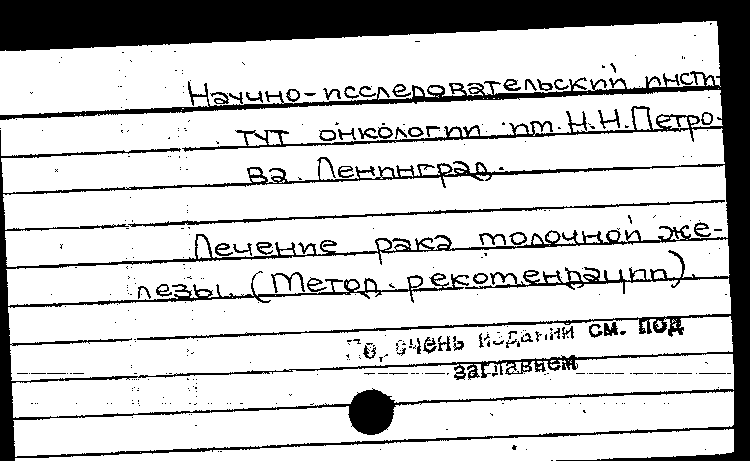 Научно-исследовательский инсти-
тут онкологии им. Н.Н.Петро-
ва. Ленинград.
Лечение рака молочной же-
лезы. (Метод. рекомендации).
Перечень изданий см. под
заглавием